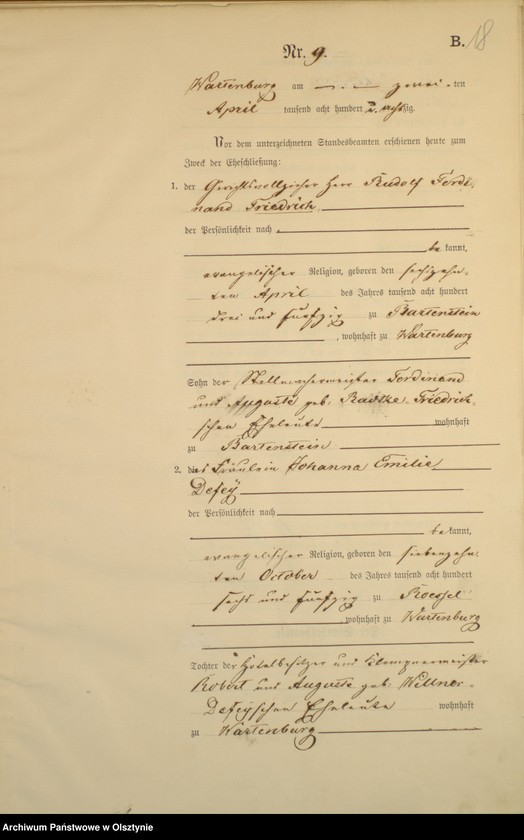 B. 18
Nr. 9.
Wartenburg am zwei ten
April tausend acht hundert u. achtzig.
Vor dem unterzeichneten Standesbeamten erschienen heute zum
Zweck der Eheschließung:
1. der Gerichtsvollzieher Herr Rudolf Ferdi-
nand Friedrich,
der Persönlichkeit nach
be kannt,
evangelischer Religion, geboren den sechzehn-
ten April des Jahres tausend acht hundert
drei und fünfzig zu Bartenstein
, wohnhaft zu Wartenburg
Sohn der Stellmachermeister Ferdinand
und Auguste geb. Radtke-Friedrich-
schen Eheleute wohnhaft
zu Bartenstein
2. das Fräulein Johanna Emilie
Defey
der Persönlichkeit nach
be kannt,
evangelischer Religion, geboren den siebenzehn-
ten October des Jahres tausend acht hundert
sechs und fünfzig zu Roessel
, wohnhaft zu Wartenburg
Tochter der Hotelbesitzer und Klempnermeister
Robert und Auguste geb. Willner-
Defeyschen Eheleute wohnhaft
zu Wartenburg
Archiwum Państwowe w Olsztynie